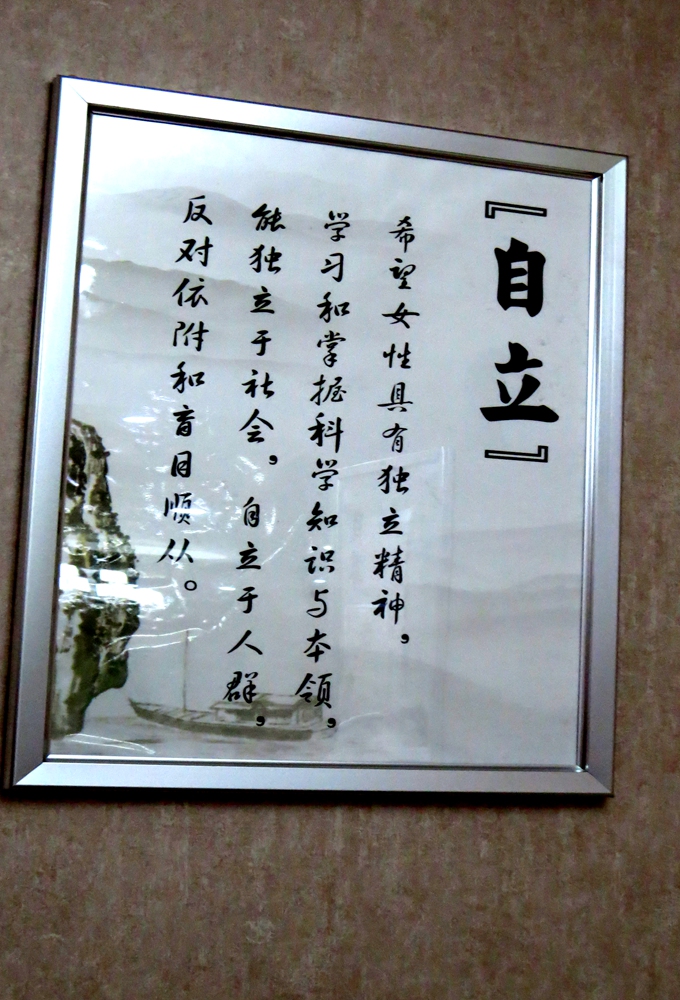 『自立』
希望女性具有独立精神，
学习和掌握科学知识与本领，
能独立于社会，自立于人群，
反对依附和盲目顺从。